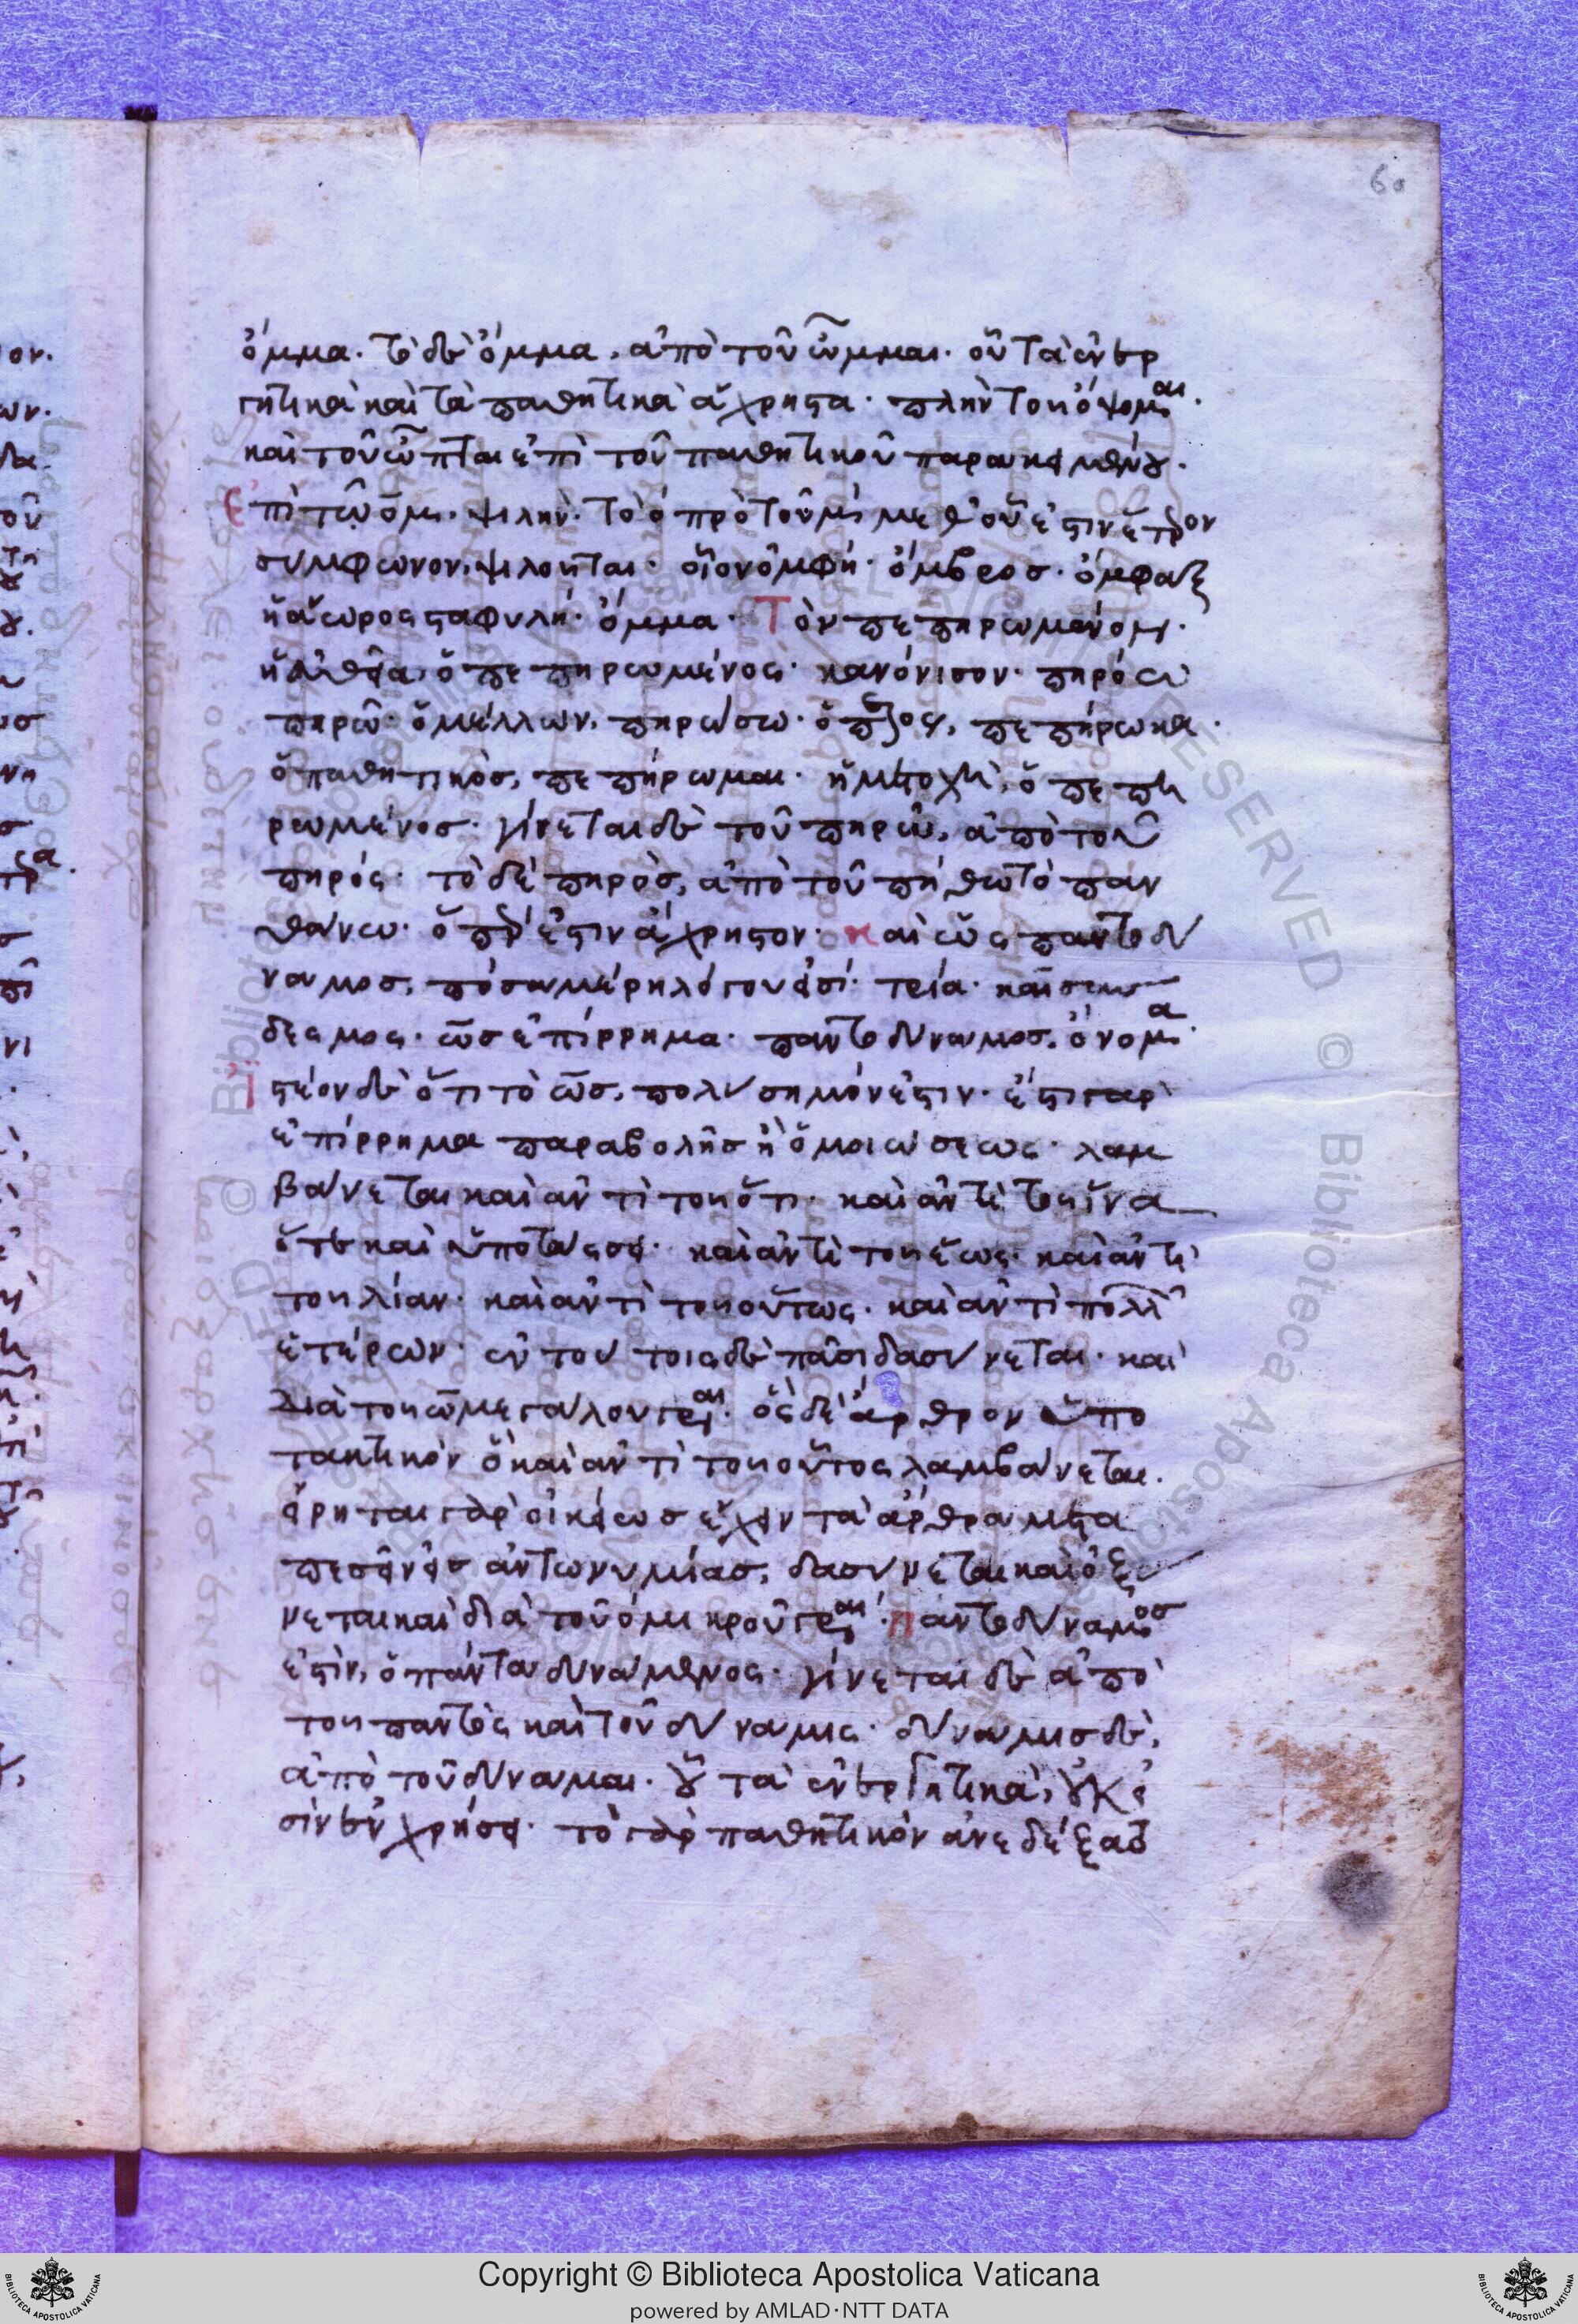 60
ὄμμα· τὸ δὲ ὄμμα, ἀπὸ τοῦ ὦμμαι· οὗ τὰ ἐνερ
γητικὰ καὶ τὰ παθητικὰ ἄχρηστα· πλὴν τοῦ ὄψομαι·
καὶ τοῦ ὦπται ἐπὶ τοῦ παθητικοῦ παρακειμένου·
Ἐπὶ τῶ ὄμ ψιλὴν· τὸ ο πρὸ τοῦ μ μεθ' οὗ ἐστιν ἕτερον
σύμφωνον, ψιλοῦται· οἷον ὀμφή· ὄμβρος· ὄμφαξ
ἡ ἄωρος σταφυλή· ὄμμα· Τὸν πεπηρωμένον
ἡ εὐθεῖα, ὁ πεπηρωμένος· κανόνισον· πηρόω
πηρῶ· ὁ μέλλων, πηρώσω· ὁ πεπήρωκα·
ὁ παθητικὸς, πεπήρωμαι· ἡ μετοχὴ, ὁ πεπη
ρωμένος· γίνεται δὲ τοῦ πηρῶ, ἀπὸ τοῦ
πηρός· τὸ δὲ πηρὸς, ἀπὸ τοῦ πήθω τὸ παν
θάνω· ὅπερ ἐστιν ἄχρηστον· καὶ ὡς παντοδύ
ναμος, πόσα μέρη λόγου εἰσί· τρία· καὶ σύν
δεσμος· ὡς ἐπίρρημα· παντοδύναμος, ὄνομα·
Ἰστέον δὲ ὅτι τὸ ὡς, πολυσήμόν ἐστιν· ἔστι γὰρ
ἐπίρρημα παραβολῆς ἢ ὁμοιώσεως· λαμ
βάνεται καὶ ἀντὶ τοῦ ὅτι· καὶ ἀντὶ τοῦ ἵνα
ὅτε καὶ ὑποτάσσει· καὶ ἀντὶ τοῦ ἕως· καὶ ἀντὶ
τοῦ λίαν· καὶ ἀντὶ τοῦ οὕτως· καὶ ἀντὶ πολλῶν
ἑτέρων· ἐν τούτοις δὲ πᾶσι δασύνεται· καὶ
διὰ τοῦ ω μεγάλου γράφεται· ὃς δὲ ἄρθρον ὑπο
τακτικὸν ὃ καὶ ἀντὶ τοῦ οὗτος λαμβάνεται·
εἴρηται γὰρ οἰκείως ἔχειν τὰ ἄρθρα μετα
πεσεῖν εἰς ἀντωνυμίας, δασύνεται καὶ ὀξύ
νεται καὶ διὰ τοῦ ο μικροῦ γράφεται· παντοδύναμος
ἐστὶν, ὁ πάντα δυνάμενος· γίνεται δὲ ἀπὸ
τοῦ παντὸς καὶ τοῦ δύναμις· δύναμις δὲ,
ἀπὸ τοῦ δύναμαι· οὗ τὰ ἐνεργητικὰ, οὐκ εἰ
σὶν ἐν χρήσει· τὸ γὰρ παθητικὸν ἀνεδέξατο
Copyright © Biblioteca Apostolica Vaticana
powered by AMLAD·NTT DATA